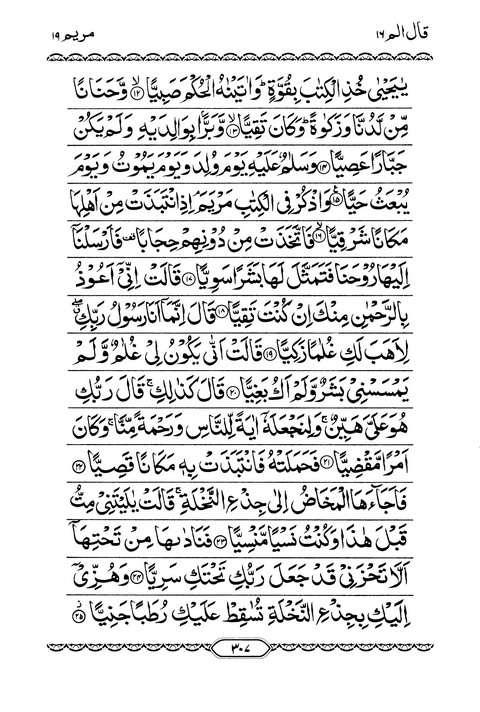 قال الم ١٦ مريم ١٩
يٰيَحْيٰى خُذِ الْكِتٰبَ بِقُوَّةٍ ؕ وَاٰتَيْنٰهُ الْحُكْمَ صَبِيًّا ۙ﴿۱۲﴾ وَّحَنَانًا
مِّنْ لَّدُنَّا وَزَكٰوةً ؕ وَكَانَ تَقِيًّا ۙ﴿۱۳﴾ وَّبَرًّۢا بِوَالِدَيْهِ وَلَمْ يَكُنْ
جَبَّارًا عَصِيًّا ﴿۱۴﴾ وَسَلٰمٌ عَلَيْهِ يَوْمَ وُلِدَ وَيَوْمَ يَمُوْتُ وَيَوْمَ
يُبْعَثُ حَيًّا ﴿۱۵﴾ وَاذْكُرْ فِى الْكِتٰبِ مَرْيَمَ ۘ اِذِ انْتَبَذَتْ مِنْ اَهْلِهَا
مَكَانًا شَرْقِيًّا ۙ﴿۱۶﴾ فَاتَّخَذَتْ مِنْ دُوْنِهِمْ حِجَابًا ۪۟ فَاَرْسَلْنَاۤ
اِلَيْهَا رُوْحَنَا فَتَمَثَّلَ لَهَا بَشَرًا سَوِيًّا ﴿۱۷﴾ قَالَتْ اِنِّىْۤ اَعُوْذُ
بِالرَّحْمٰنِ مِنْكَ اِنْ كُنْتَ تَقِيًّا ﴿۱۸﴾ قَالَ اِنَّمَاۤ اَنَا رَسُوْلُ رَبِّكِ ۖۗ
لِاَهَبَ لَكِ غُلٰمًا زَكِيًّا ﴿۱۹﴾ قَالَتْ اَنّٰى يَكُوْنُ لِىْ غُلٰمٌ وَّلَمْ
يَمْسَسْنِىْ بَشَرٌ وَّلَمْ اَكُ بَغِيًّا ﴿۲۰﴾ قَالَ كَذٰلِكِ ۚ قَالَ رَبُّكِ
هُوَ عَلَىَّ هَيِّنٌ ۚ وَلِنَجْعَلَهٗۤ اٰيَةً لِّلنَّاسِ وَرَحْمَةً مِّنَّا ۚ وَكَانَ
اَمْرًا مَّقْضِيًّا ﴿۲۱﴾ فَحَمَلَتْهُ فَانْتَبَذَتْ بِهٖ مَكَانًا قَصِيًّا ﴿۲۲﴾
فَاَجَآءَهَا الْمَخَاضُ اِلٰى جِذْعِ النَّخْلَةِ ۚ قَالَتْ يٰلَيْتَنِىْ مِتُّ
قَبْلَ هٰذَا وَكُنْتُ نَسْيًا مَّنْسِيًّا ﴿۲۳﴾ فَنَادٰىهَا مِنْ تَحْتِهَاۤ
اَلَّا تَحْزَنِىْ قَدْ جَعَلَ رَبُّكِ تَحْتَكِ سَرِيًّا ﴿۲۴﴾ وَهُزِّىْۤ
اِلَيْكِ بِجِذْعِ النَّخْلَةِ تُسٰقِطْ عَلَيْكِ رُطَبًا جَنِيًّا ۫﴿۲۵﴾
۳۰۷